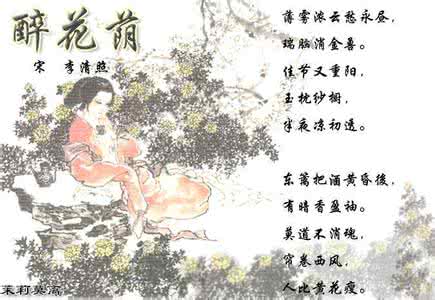 醉花荫
宋 李清照
薄雾浓云愁永昼，
瑞脑消金兽。
佳节又重阳，
玉枕纱橱，
半夜凉初透。
东篱把酒黄昏後，
有暗香盈袖。
莫道不消魂，
帘卷西风，
人比黄花瘦。